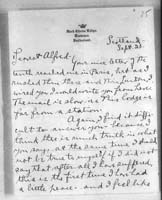 Scotland
Sept. 23.
Dearest Alfred,
Your nice letter of the
tenth reached me in Paris, just as I
reached this there and this London I
wired you I would write you from here.
The mail is slow, as this lodge is
far from a station.
Again I find it diffi-
cult to answer you, because I
think there is much truth in what
you say, at the same time I should
not be true to myself if I did not
say that after all I have suffered,
this is the first time I have had
a little peace. and I feel like